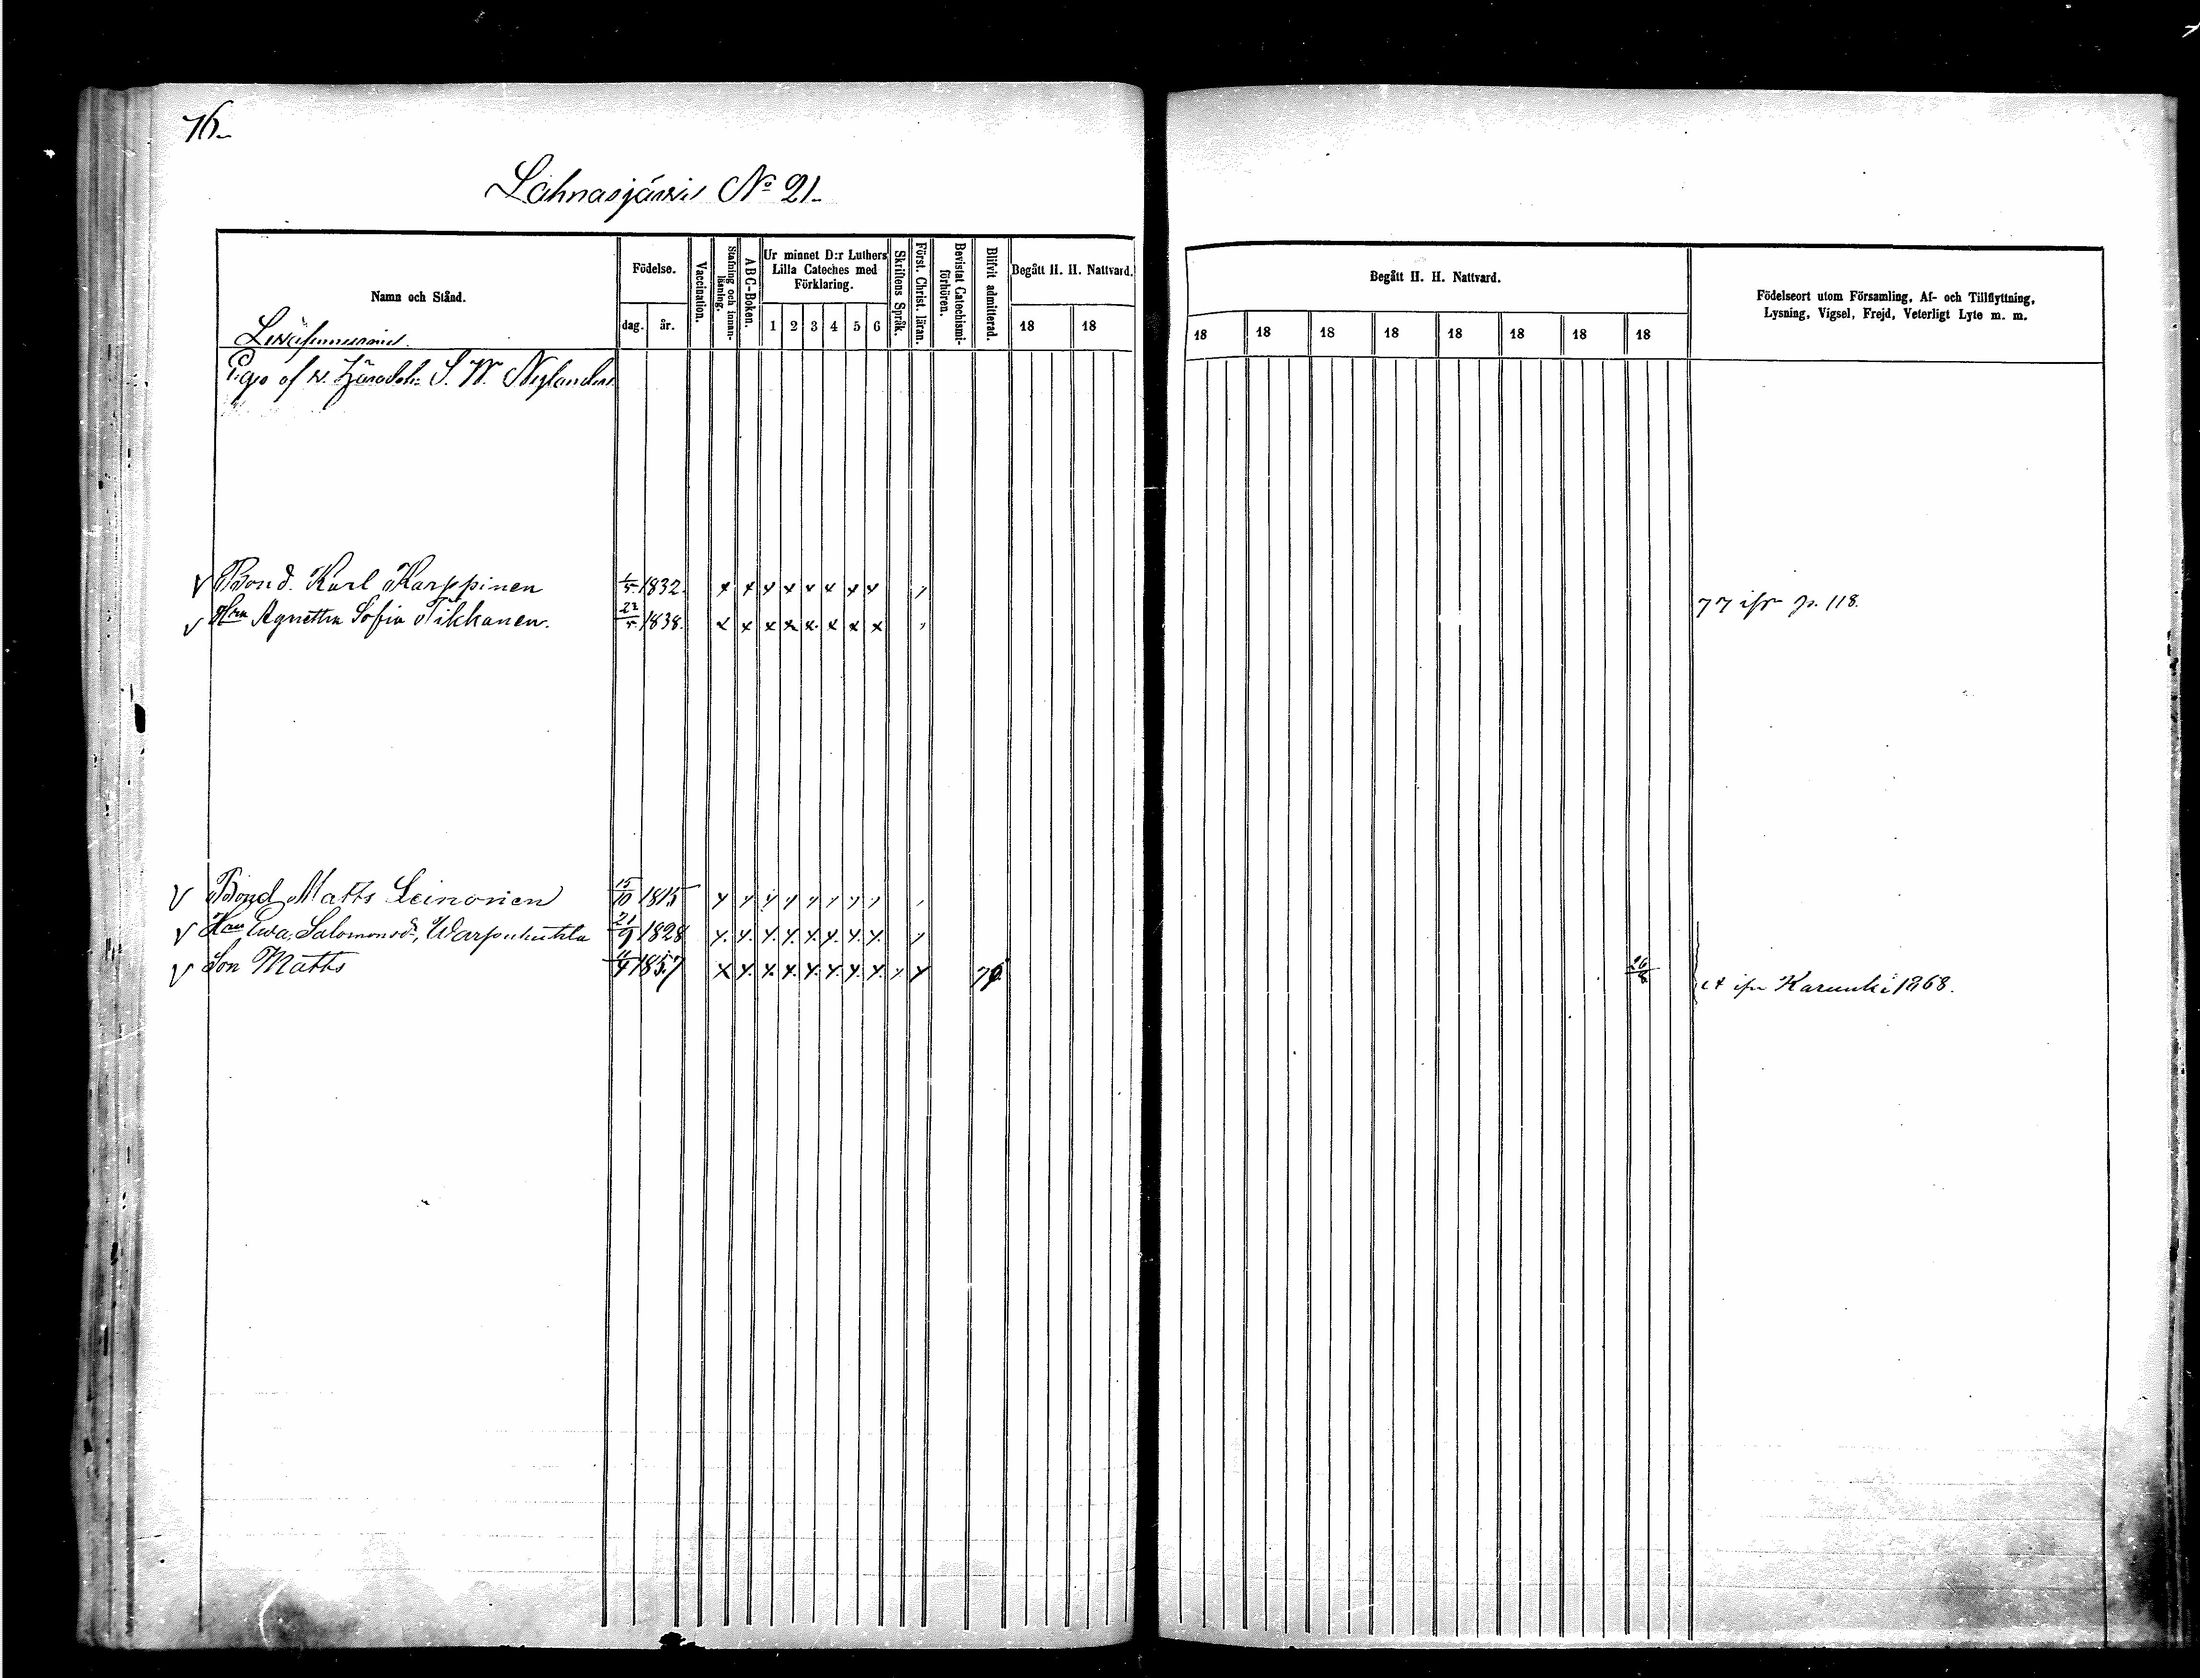 76
Lahnasjärwi No 21
Namn och Stånd.
Födelse.
dag. år.
Vaccination.
Stafning och innanläsning.
ABC-Boken.
Ur minnet D:r Luthers Lilla Cateches med Förklaring.
1 2 3 4 5 6
Skriftens Språk.
Först. Christ. läran.
Bevistat Catechismiförhören.
Blifvit admitterad.
Begått H. H. Nattvard.
18 18
Begått H. H. Nattvard.
18 18 18 18 18 18 18 18
Födelseort utom Församling, Af- och Tillflyttning,
Lysning, Vigsel, Frejd, Veterligt Lyte m. m.
Eges af S. W. Nylander
V Bond. Karl Karppinen 1/5 1832 x x x x x x x x
77 p. 118.
V Hru Agnetha Sofia Tikkanen. 22/5 1838. x x x x x x x x
V Bond Matts Leinonen 15/10 1815
V Hru Ewa Salomonsdr, 21/9 1828
V Son Matts 4/4 1857
26/8
Karunki 1868.